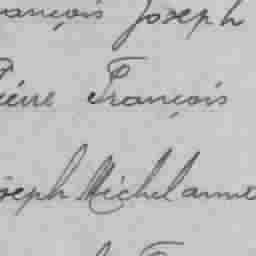 rançois Joseph
Pierre François
oseph Michel anne